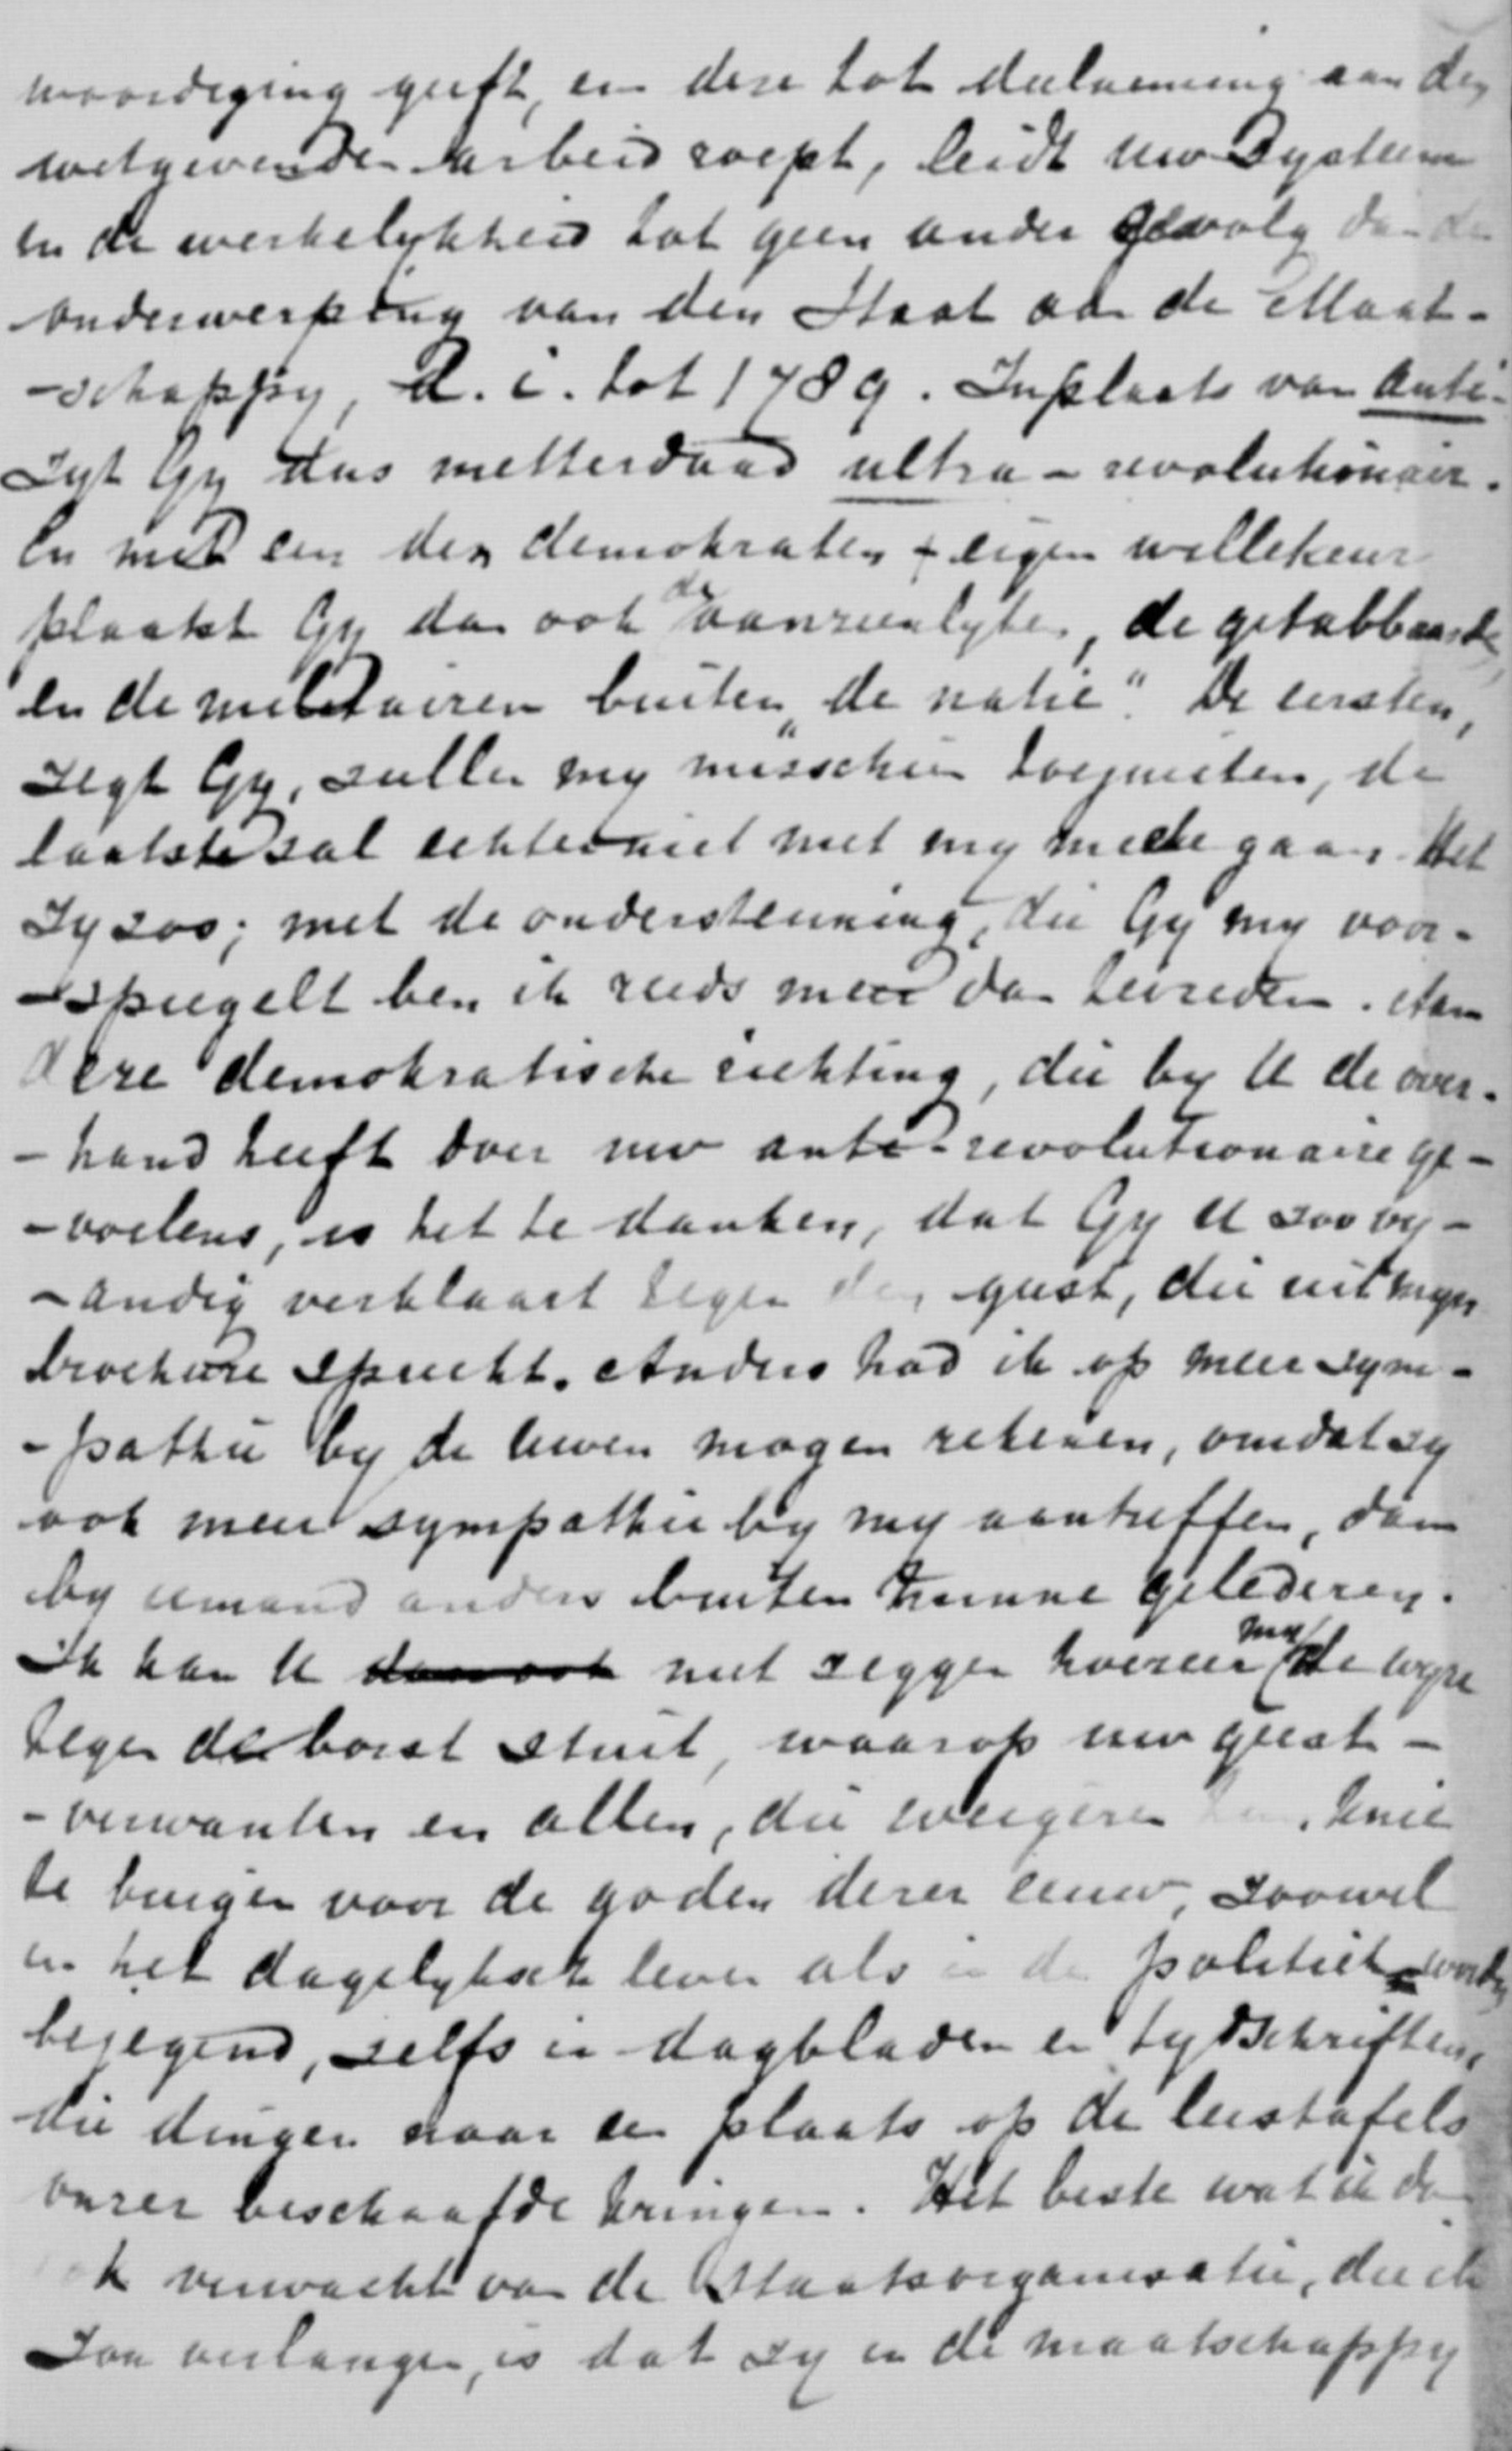 woordiging geeft, en deze tot deelneming aan den
wetgevenden arbeid roept, leidt uw systeem
in de werkelykheid tot geen ander gevolg dan de
onderwerping van den Staat aan de Maat-
-schappy, d. i. tot 1789. Inplaats van anti-
zyt Gy dus metterdaad ultra-revolutionair.
En met een den demokraten eigen willekeur
plaatst Gy dan ook de aanzienlyken, de getabbaarde
en de militairen buiten "de natie". De eersten,
zegt Gy, zullen my misschien toejuichen, de
laatste zal echter niet met my mede gaan. Het
zy zoo; met de ondersteuning, die Gy my voor-
-spiegelt ben ik reeds meer dan tevreden. Aan
deze demokratische richting, die by U de over-
-hand heeft over uw anti-revolutionaire ge-
-voelens, is het te danken, dat Gy U zoo vy-
-andig verklaart tegen den geest, die uit myn
brochure spreekt. Anders had ik op meer sym-
-pathie by de uwen mogen rekenen, omdat zy
ook meer sympathie by my aantreffen, dan
by iemand anders buiten hunne gelederen.
Ik kan U niet zeggen hoezeer my de wyze
tegen de borst stuit, waarop uw geest-
-verwanten en allen, die weigeren knie
te buigen voor de goden dezer eeuw, zoowel
in het dagelyksch leven als in de politiek worden
bejegend, zelfs in dagbladen en tydschriften,
die dingen naar een plaats op de leestafels
onzer beschaafde kringen. Het beste wat ik dan
ook verwacht van de Staatsorganisatie, die ik
zou verlangen, is dat zy in de maatschappy